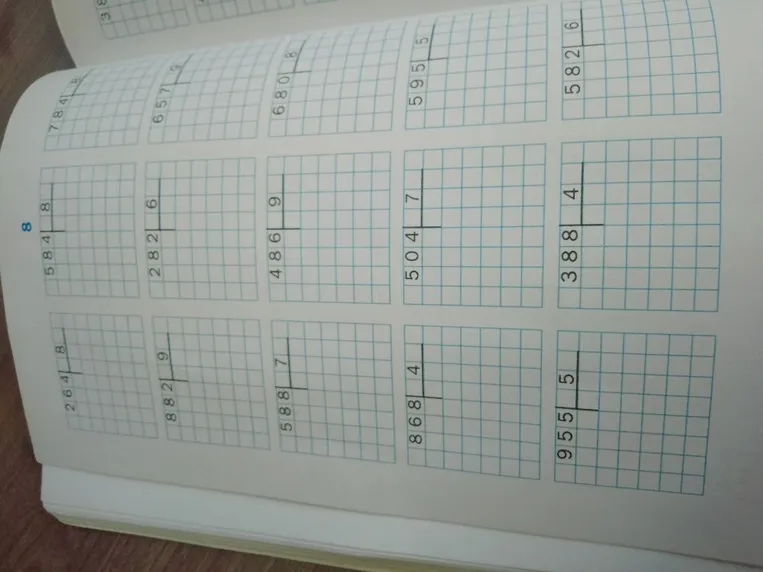 8
264 8 584 8 784 8
882 9 282 6 657 9
588 7 486 9 680 8
868 4 504 7 595 5
955 5 388 4 582 6